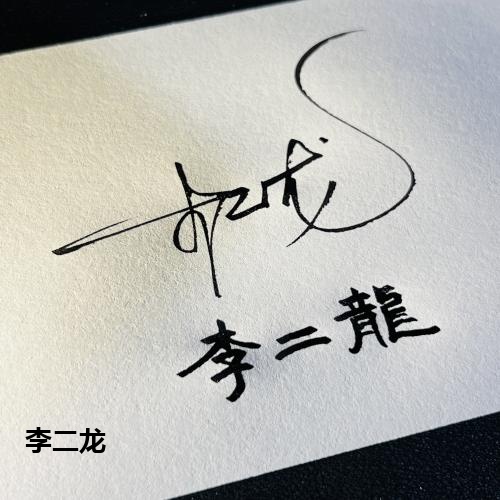 李二龙
李二龍
李二龙